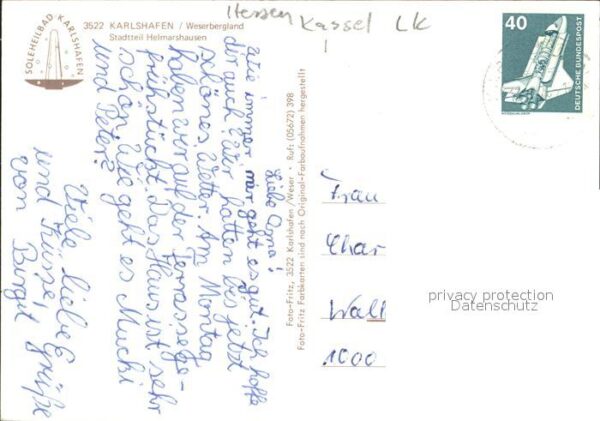 Hessen Kassel LK
SOLEHEILBAD KARLSHAFEN
3522 KARLSHAFEN / Weserbergland
Stadtteil Helmarshausen
40
DEUTSCHE BUNDESPOST
Liebe Oma!
Wie immer mir geht es gut. Ich hoffe
dir auch. Wir hatten bis jetzt
schönes Wetter. Am Montag
haben wir auf der Terrasse ge-
frühstückt. Das Haus ist sehr
schön. Wie geht es Mucki
und Peter?
Viele liebe Grüße
und Küsse,
von Birgit
Foto-Fritz, 3522 Karlshafen/Weser · Ruf: (05672) 398
Foto-Fritz Farbkarten sind nach Original-Farbaufnahmen hergestellt
Frau
Char
Wall
1000
privacy protection
Datenschutz